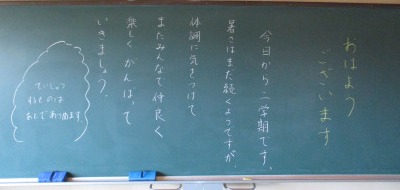 おはよう
ございます
今日から二学期です。
暑さはまだ続くようですが、
体調に気をつけて
またみんなで仲良く
楽しくがんばって
いきましょう。
ていしゅつ
するものは
あとであつめます。